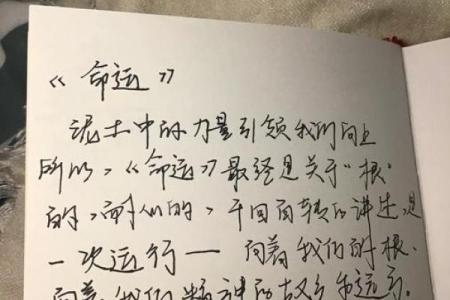 《命运》
泥土中的力量引领我们向上
所以，《命运》最终是关于“根”
的，耐心的，千回百转的讲述，是
一次运行——向着我们的根、
向着我们精神的故乡和远方。